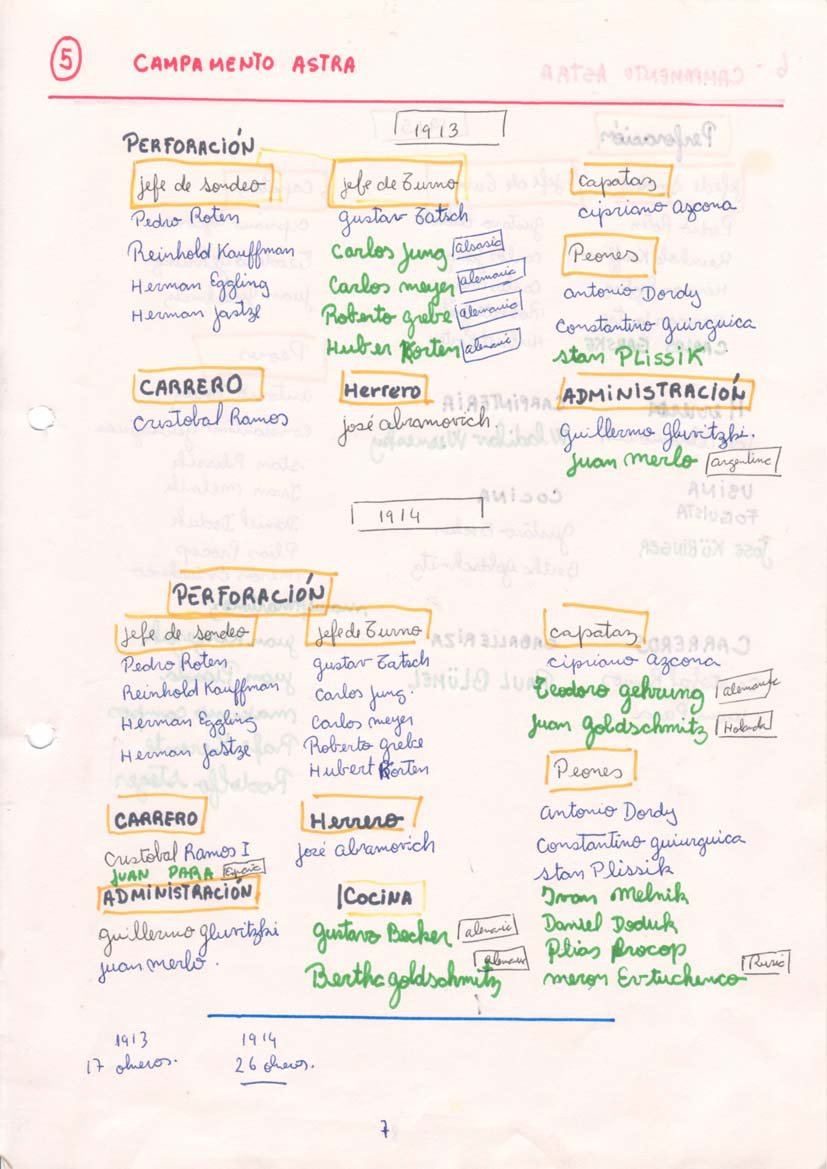 5 CAMPAMENTO ASTRA
1913
PERFORACIÓN
jefe de sondeo
Pedro Roten
Reinhold Kauffman
Herman Eggling
Herman Jastze
jefe de Turno
gustav Tatsch
Carlos Jung alsasia
Carlos meyer alemania
Roberto grebe alemania
Huber Korten alemania
capataz
cipriano azcona
Peones
antonio Dordy
Constantino guirguica
stan PLISSIK
CARRERO
Cristobal Ramos
Herrero
josé abramovich
ADMINISTRACIÓN
guillermo gluvitzki.
juan merlo argentino
1914
PERFORACIÓN
jefe de sondeo
Pedro Roten
Reinhold Kauffman
Herman Eggling
Herman Jastze
jefe de Turno
gustav Tatsch
Carlos Jung.
Carlos meyer
Roberto grebe
Hubert Korten
capataz
cipriano azcona
Teodoro gehrung alemania
juan goldschmitz Holanda
Peones
Antonio Dordy
Constantino guiurguica
stan Plissik
Ivan melnik
Daniel Doduk
Plias Procop
meron Evstuchenco Rusia
CARRERO
Cristobal Ramos I
JUAN PARA España
Herrero
josé abramovich
ADMINISTRACIÓN
guillermo gluvitzki
juan merlo.
COCINA
gustavo Becker alemania
Bertha goldschmitz alemania
1913
17 obreros.
1914
26 obreros.
7